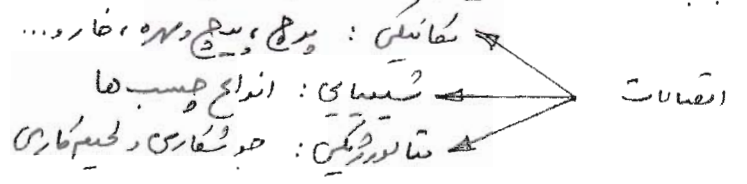 مکانیکی : پرچ ، پیچ و مهره ، خار و ...
اتصالات
شیمیایی : انواع چسب ها
متالورژیکی : جوشکاری و لحیم کاری